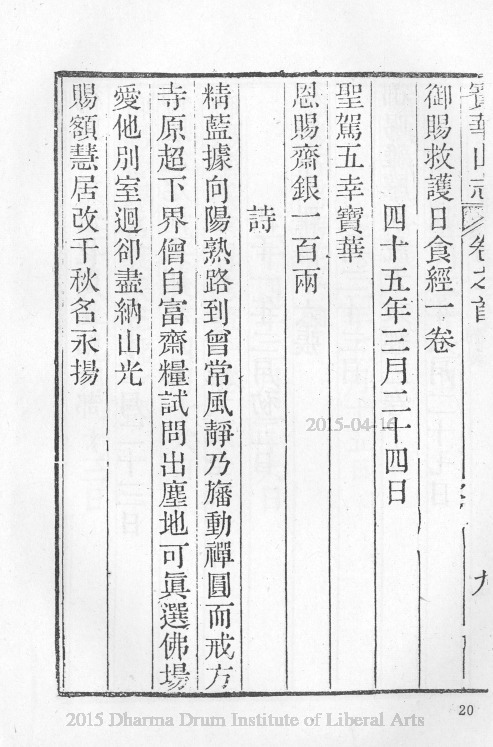 寶華山志 卷之首 九
御賜救護日食經一卷
四十五年三月二十四日
聖駕五幸寶華
恩賜齋銀一百兩
詩
精藍據向陽熟路到曾常風靜乃旛動禪圓而戒方
寺原超下界僧自富齋糧試問出塵地可眞選佛場
愛他別室迴卻盡納山光
賜額慧居改千秋名永揚
2015-04-16
20
2015 Dharma Drum Institute of Liberal Arts